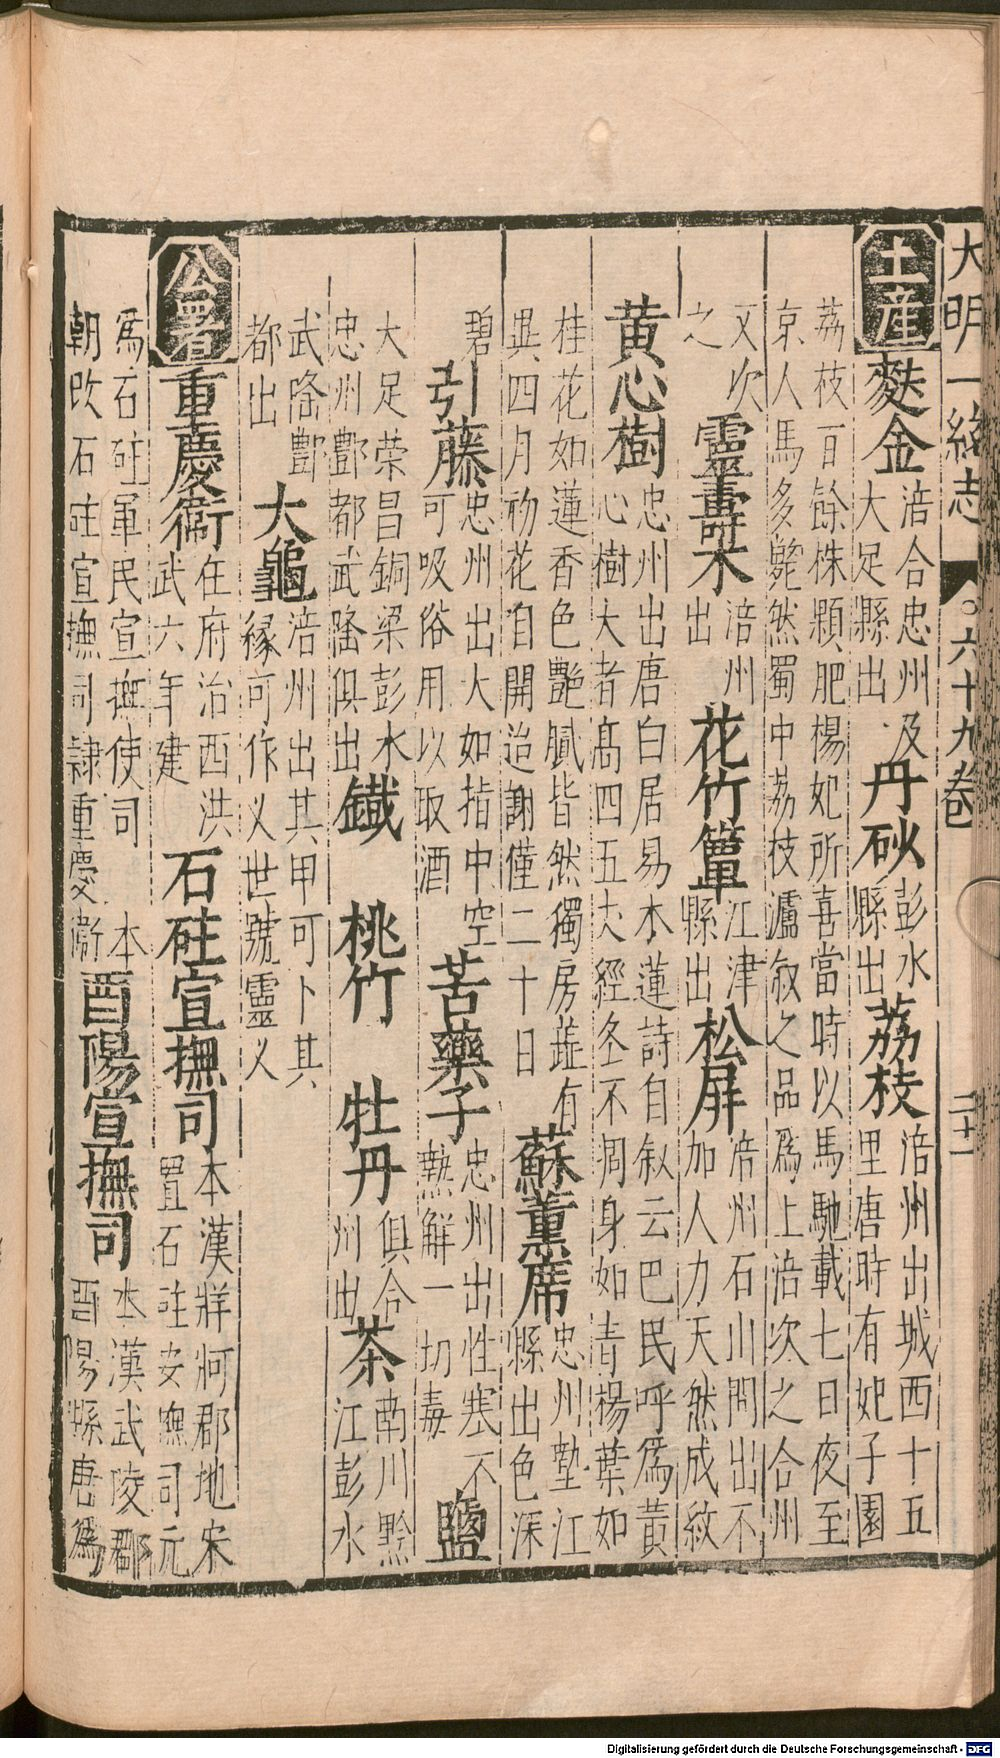 大明一統志 六十九卷 二十一
土産 麩金 涪合忠州及大足縣出 丹砂 彭水縣出 荔枝 涪州出城西十五里唐時有妃子園
荔枝百餘株顆肥楊妃所喜當時以馬馳載七日夜至京人馬多斃然蜀中荔枝瀘敘之品為上涪次之合州
又次之 靈壽木 涪州出 花竹簟 江津縣出 松屏 涪州石山間出不加人力天然成紋
黄心樹 忠州出唐白居易木蓮詩自叙云巴民呼爲黄心樹大者高四五丈經冬不凋身如青楊葉如
桂花如蓮香色艷膩皆然獨房蘂有異四月初花自開迨謝僅二十日 蘇薰席 忠州墊江縣出色深
碧 引藤 忠州出大如指中空可吸俗用以取酒 苦藥子 忠州出性寒不熱解一切毒 鹽
大足榮昌銅梁彭水忠州酆都武隆俱出 鐵 桃竹 牡丹 俱合州出 茶 南川黔江彭水
武隆酆都出 大龜 涪州出其甲可卜其緣可作义世號靈义
公署 重慶衛 在府治西洪武六年建 石砫宣撫司 本漢牂牁郡地宋置石砫安撫司元
爲石砫軍民宣撫使司本朝改石砫宣撫司隷重慶衛 酉陽宣撫司 本漢武陵郡酉陽縣唐爲
Digitalisierung gefördert durch die Deutsche Forschungsgemeinschaft - DFG